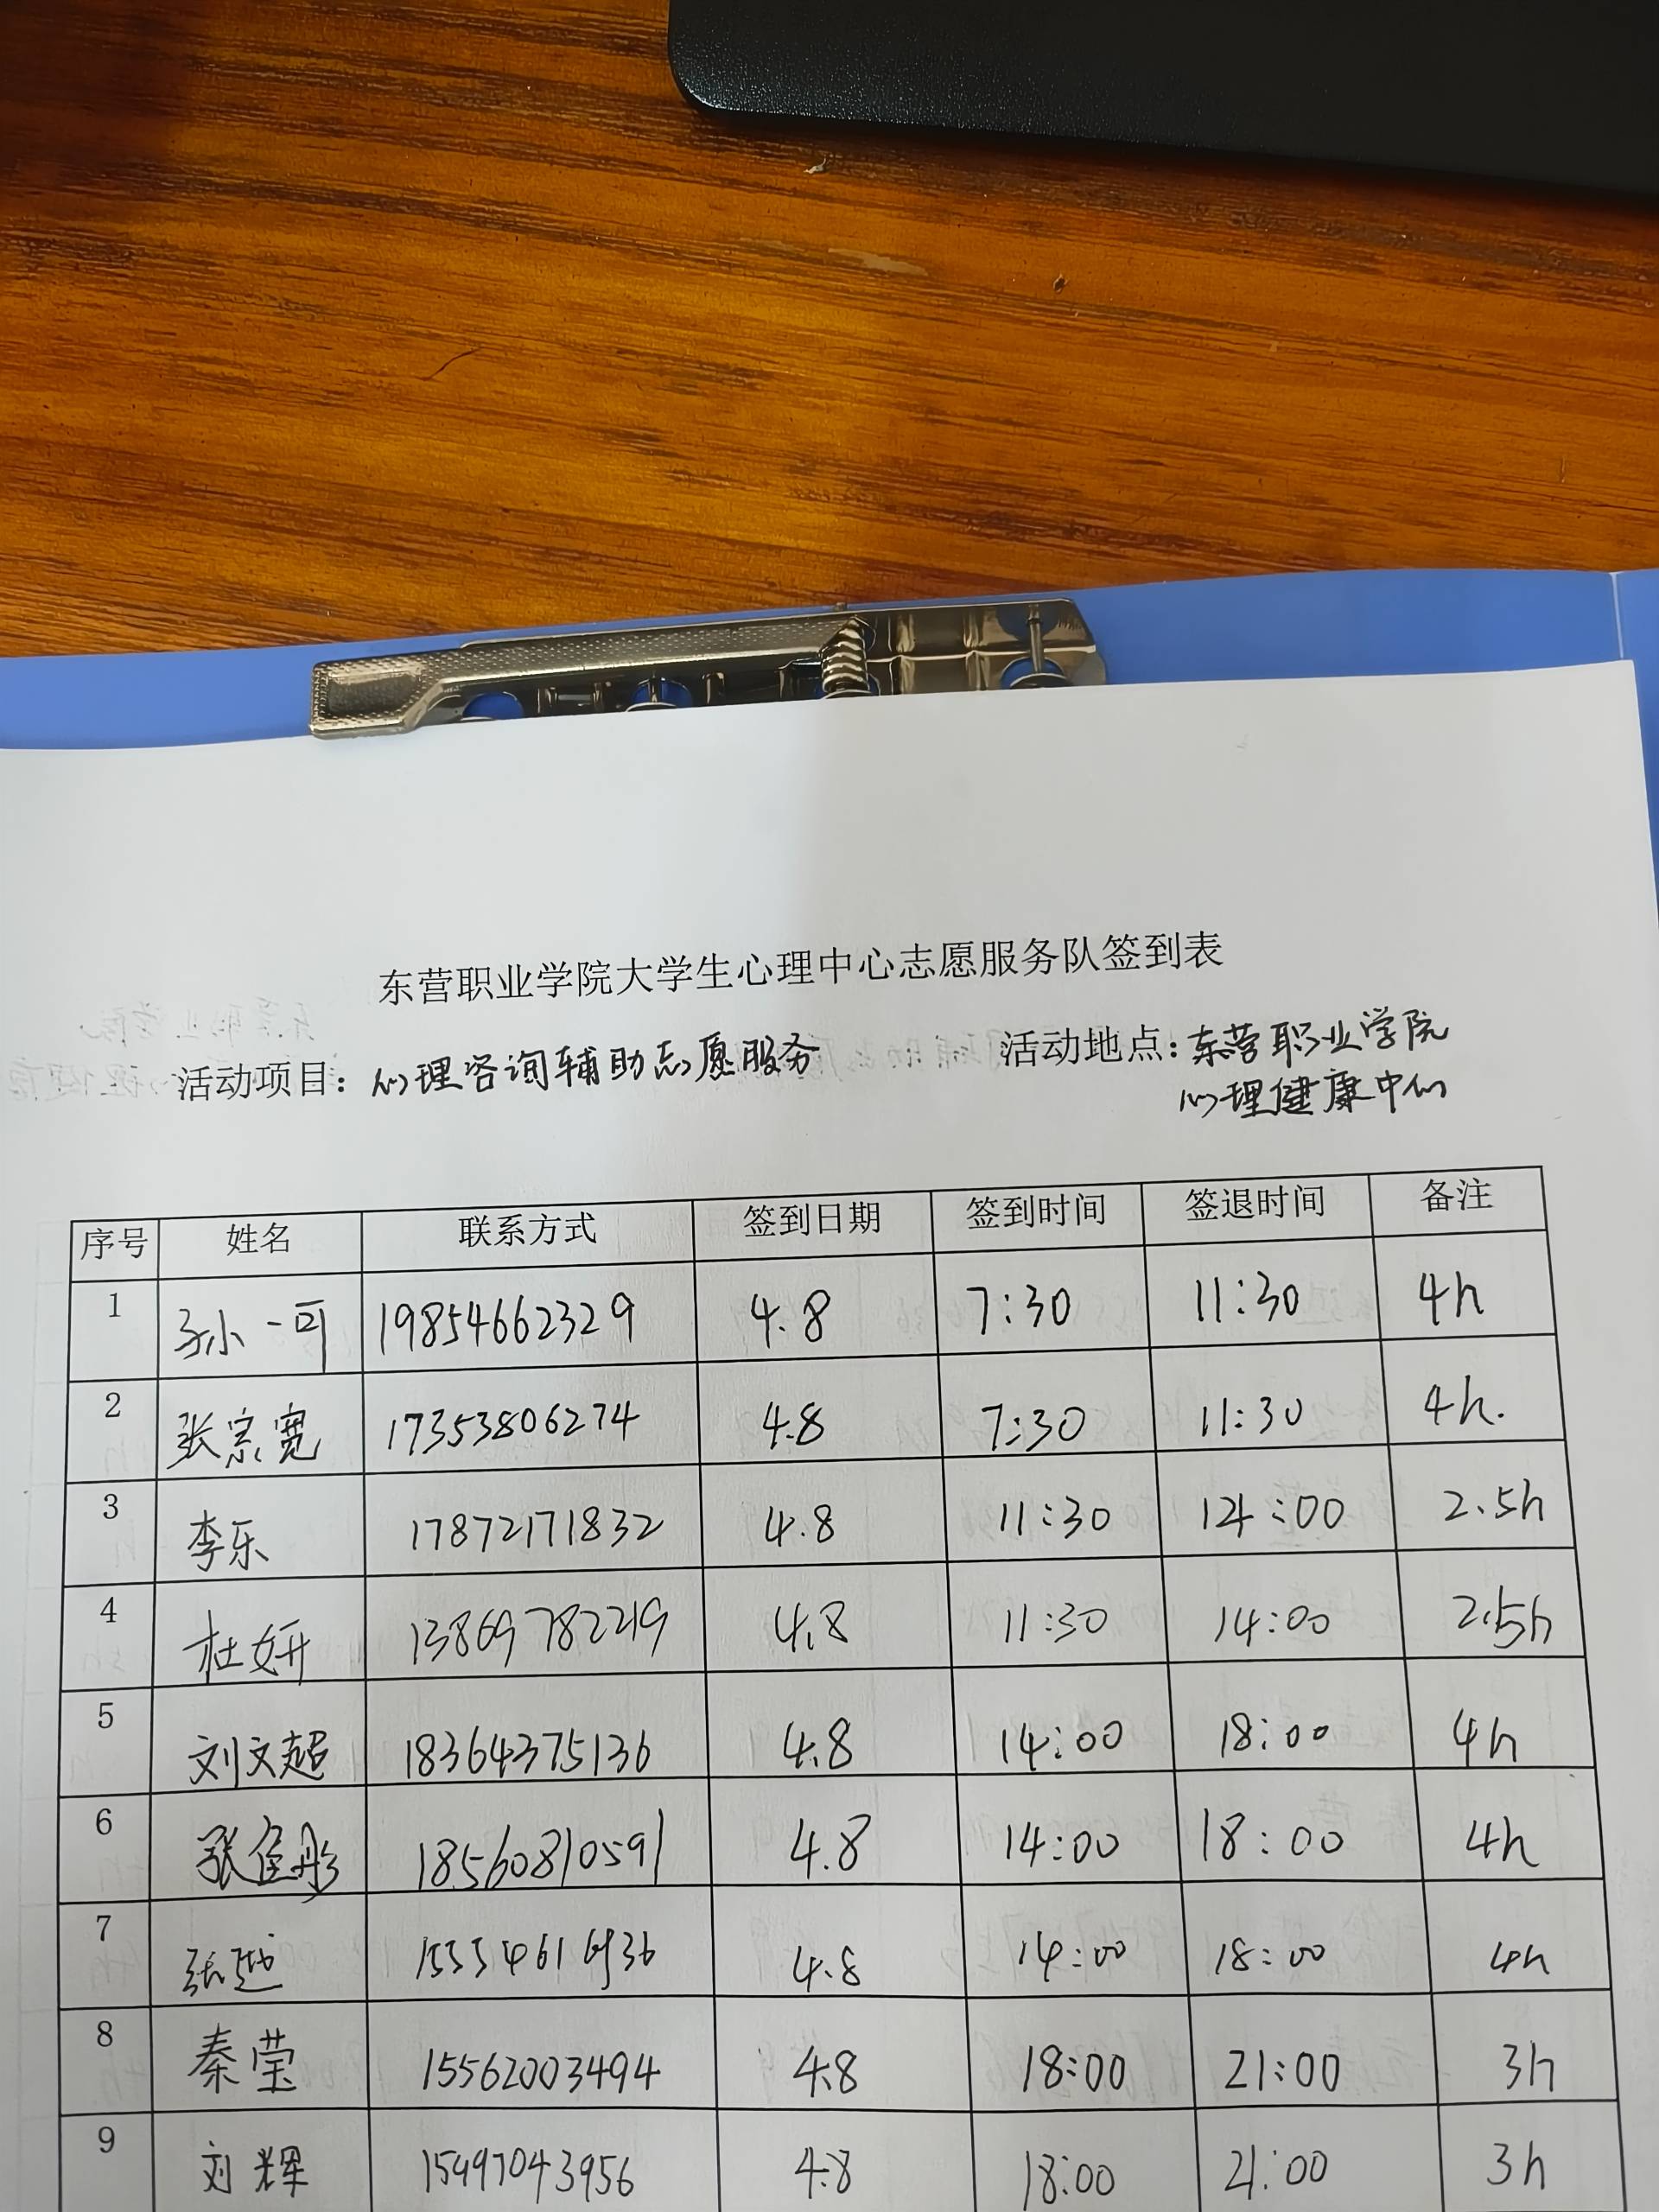 东营职业学院大学生心理中心志愿服务队签到表
活动项目：心理咨询辅助志愿服务 活动地点：东营职业学院
心理健康中心
序号 姓名 联系方式 签到日期 签到时间 签退时间 备注
1 孙一可 19854662329 4.8 7:30 11:30 4h
2 张宗宽 17353806274 4.8 7:30 11:30 4h.
3 李乐 17872171832 4.8 11:30 14:00 2.5h
4 杜妍 13869782219 4.8 11:30 14:00 2.5h
5 刘文超 18364375136 4.8 14:00 18:00 4h
6 张 18560810591 4.8 14:00 18:00 4h
7 张越 4.8 14:00 18:00 4h
8 秦莹 15562003494 4.8 18:00 21:00 3h
9 刘辉 15997043956 4.8 18:00 21:00 3h